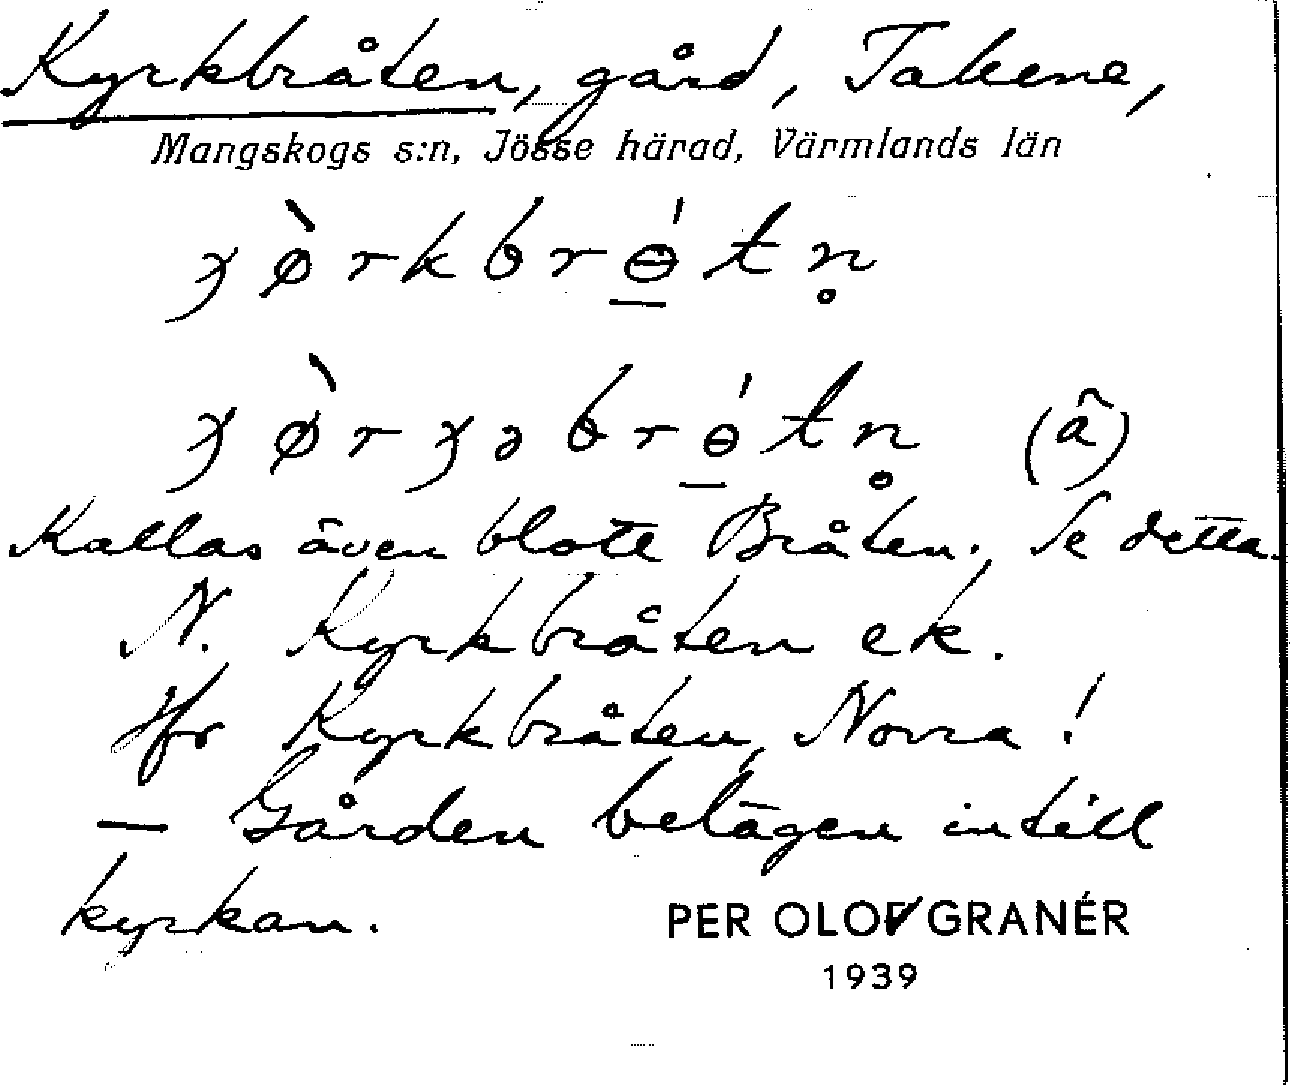 Kyrkbråten, gård, Takene,
Mangskogs s:n, Jösse härad, Värmlands län
ɣø̀rkbrɵ̲́tn̥
ɣø̀rɣəbrɵ̲́tn̥ (â)
Kallas även blott Bråten. Se detta.
N. Kyrkbråten ek.
Hfr Kyrkbråten, Norra!
— Gården belägen intill
kyrkan.
PER OLOF GRANÉR
1939